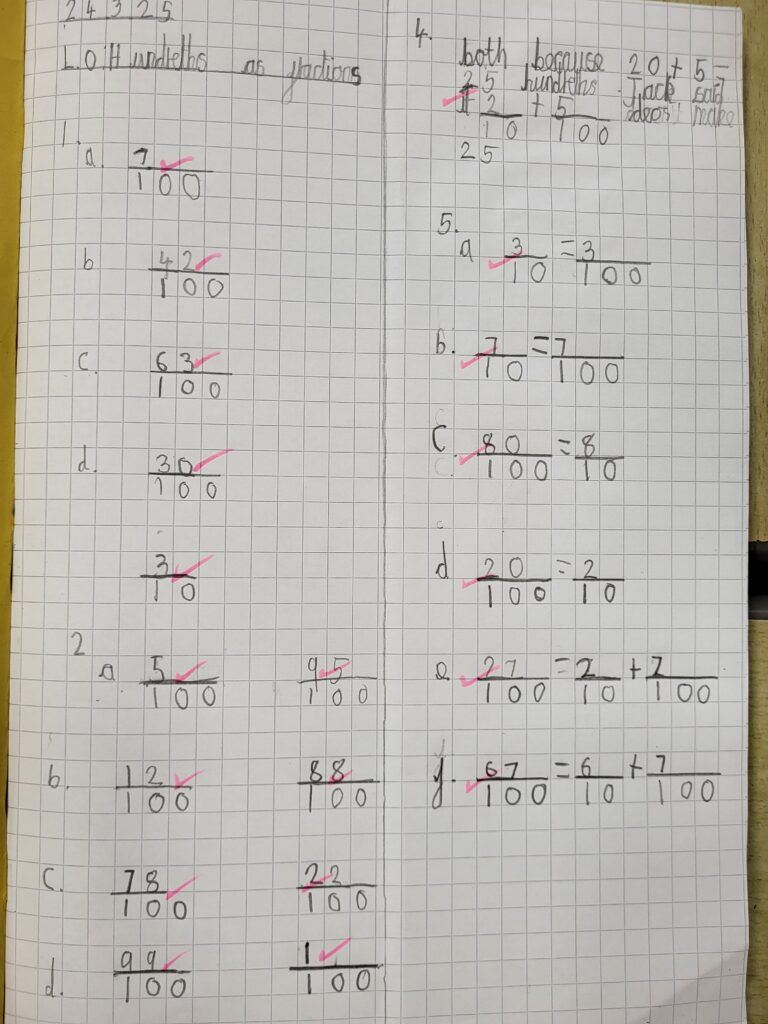 24325
L.O: Hundreths as fractions
1.
a. 7/100
b 42/100
c. 63/100
d. 30/100
3/10
2
a 5/100 95/100
b. 12/100 88/100
c. 78/100 22/100
d. 99/100 1/100
4.
both because 20 + 5 =
25 hundreths Jack said
2/10 + 5/100 make
25
5.
a 3/10 = 3/100
b. 7/10 = 7/100
c. 80/100 = 8/10
d 20/100 = 2/10
e. 27/100 = 2/10 + 7/100
f. 67/100 = 6/10 + 7/100